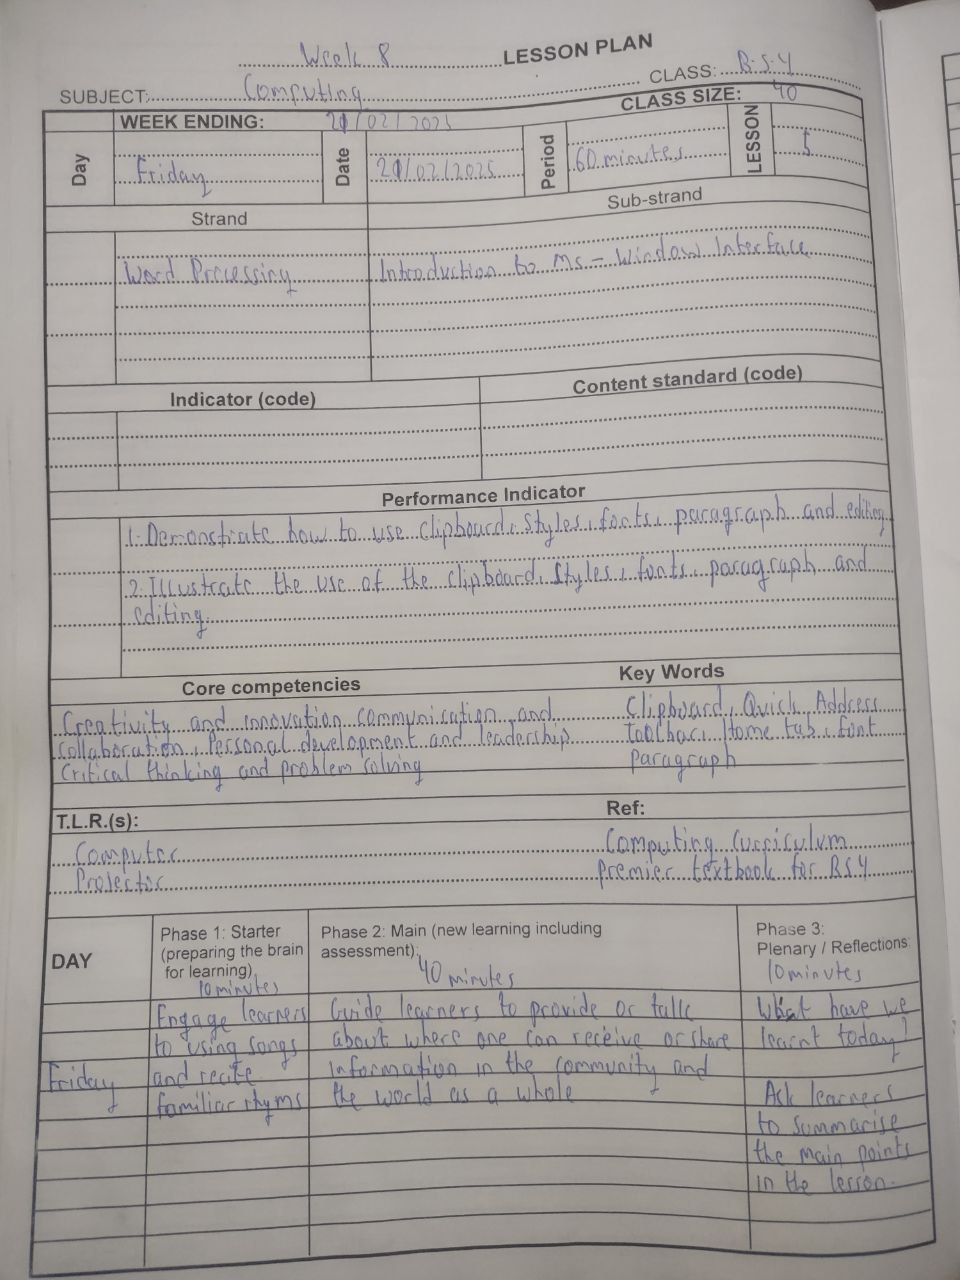 Week 8 LESSON PLAN
SUBJECT: Computing CLASS: B.S.4
CLASS SIZE: 40
WEEK ENDING: 21/02/2025
Day Friday Date 21/02/2025 Period 60 minutes LESSON 5
Strand Sub-strand
Word Processing Introduction to Ms - Window Interface
Indicator (code) Content standard (code)
Performance Indicator
1. Demonstrate how to use clipboard, styles, fonts, paragraph and editing
2. Illustrate the use of the clipboard, styles, fonts, paragraph and
editing.
Core competencies Key Words
Creativity and innovation communication and Clipboard, Quick Address
collaboration, Personal development and leadership toolbar, Home tab, font
Critical thinking and problem solving Paragraph
T.L.R.(s): Ref:
Computer Computing Curriculum
Projector Premier textbook for BS4
DAY
Phase 1: Starter
(preparing the brain
for learning)
10 minutes
Phase 2: Main (new learning including
assessment);
40 minutes
Phase 3:
Plenary / Reflections
10 minutes
Friday
Engage learners
to using songs
and recite
familiar rhyms
Guide learners to provide or talk
about where one can receive or share
information in the community and
the world as a whole
What have we
learnt today?
Ask learners
to summarise
the main points
in the lesson.